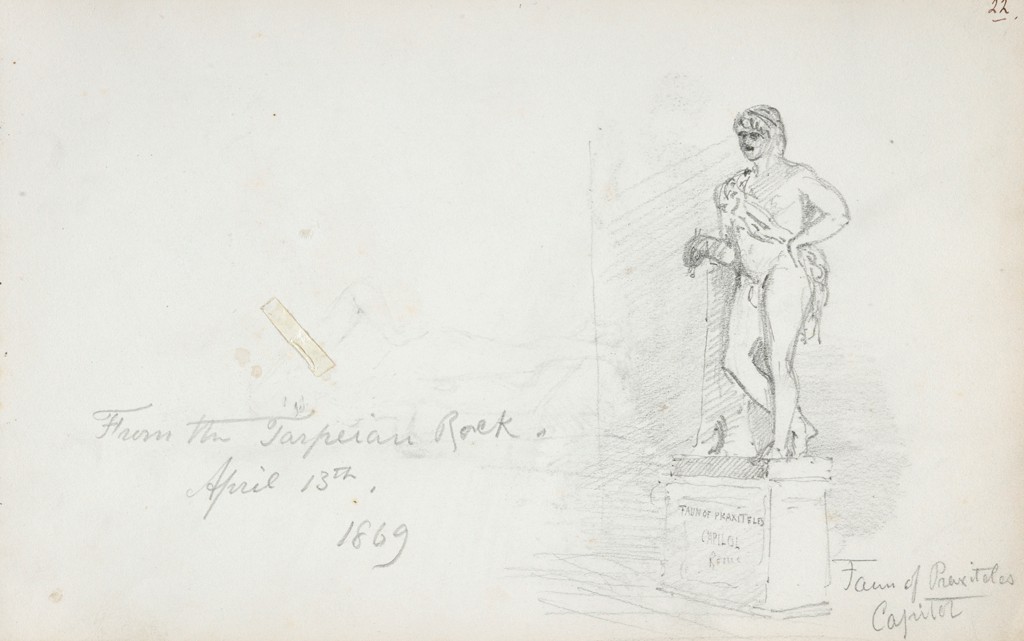 22.
From the Tarpeian Rock.
April 13th.
1869
FAUN OF PRAXITELES
CAPITOL
Rome
Faun of Praxiteles
Capitol